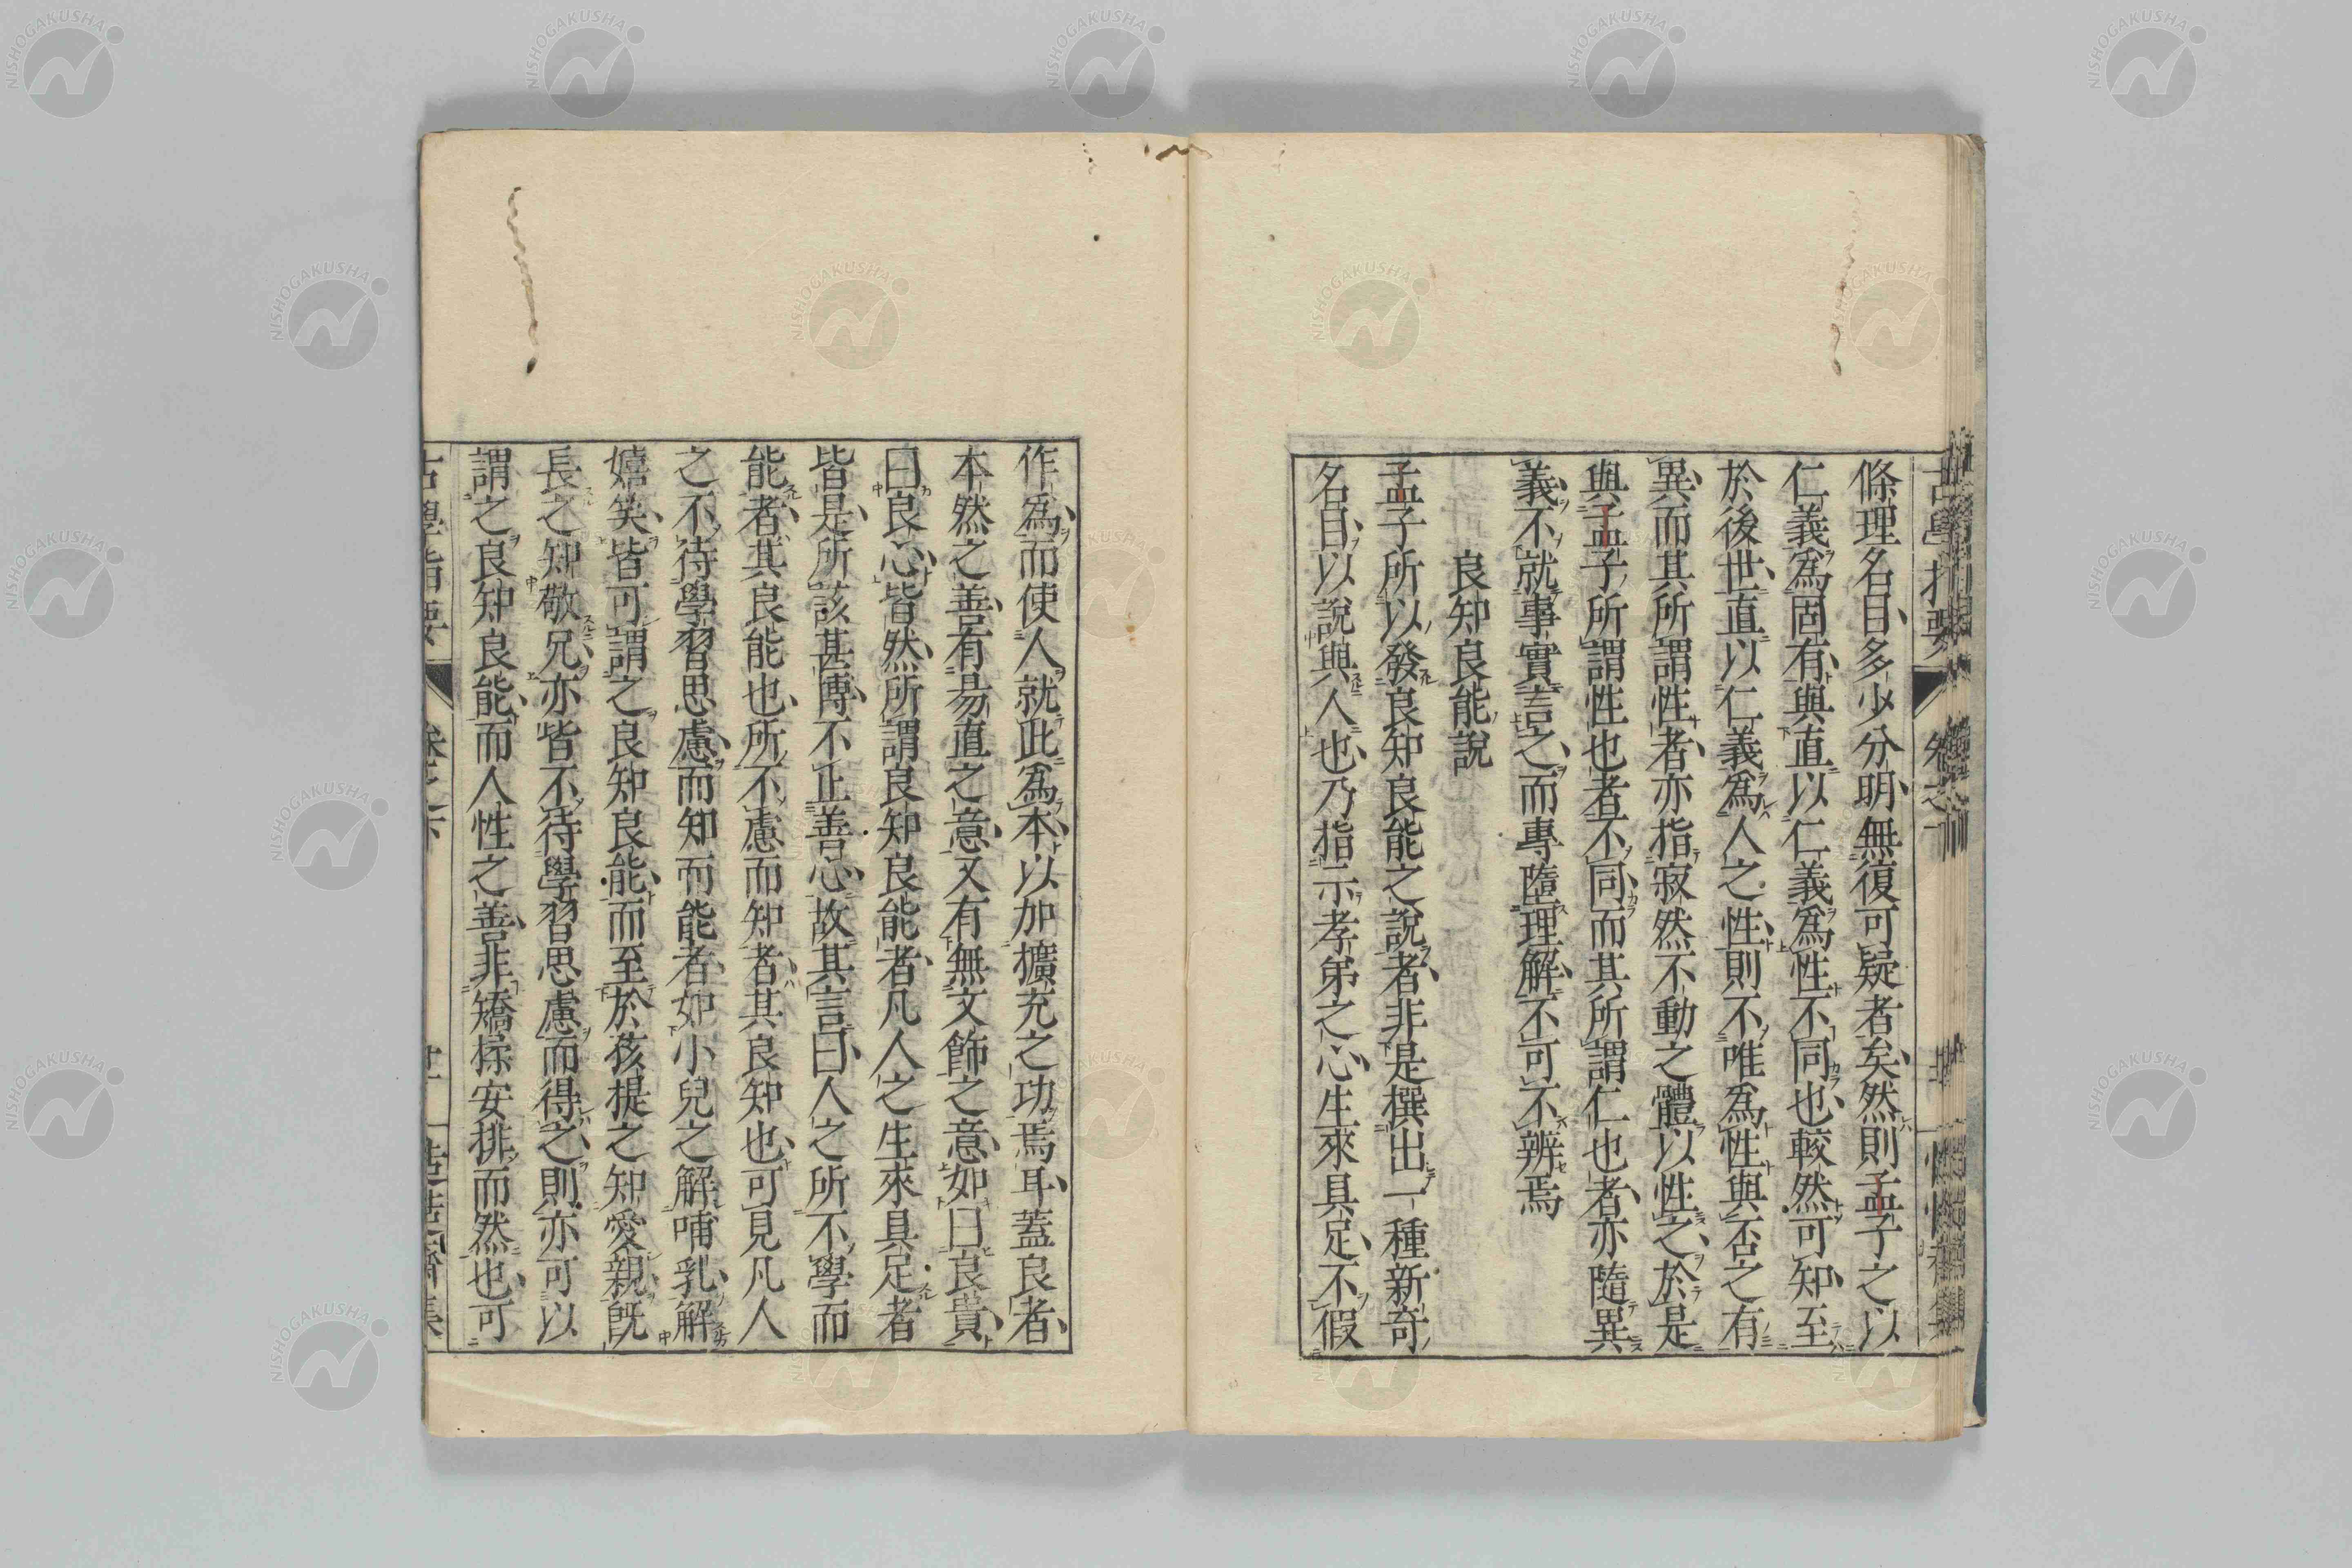 條理名目多少分明無復可疑者矣然則孟子之以
仁義爲固有與直以仁義爲性不同也較然可知至
於後世直以仁義爲人之性則不唯爲性與否之有
異而其所謂性者亦指寂然不動之體以性之於是
與孟子所謂性也者不同而其所謂仁也者亦隨異
義不就事實言之而專墮理解不可不辨焉
良知良能說
孟子所以發良知良能之說者非是撰出一種新奇
名目以說與人也乃指示孝弟之心生來具足不假
作爲而使人就此爲本以加擴充之功焉耳蓋良者
本然之善有易直之意又有無文飾之意如曰良貴
曰良心皆然所謂良知良能者凡人之生來具足者
皆是所該甚博不止善心故其言曰人之所不學而
能者其良能也所不慮而知者其良知也可見凡人
之不待學習思慮而知而能者如小兒之解哺乳解
嬉笑皆可謂之良知良能而至於孩提之知愛親旣
長之知敬兄亦皆不待學習思慮而得之則亦可以
謂之良知良能而人性之善非矯揉安排而然也可
古學指要
卷之下
NISHOGAKUSHA